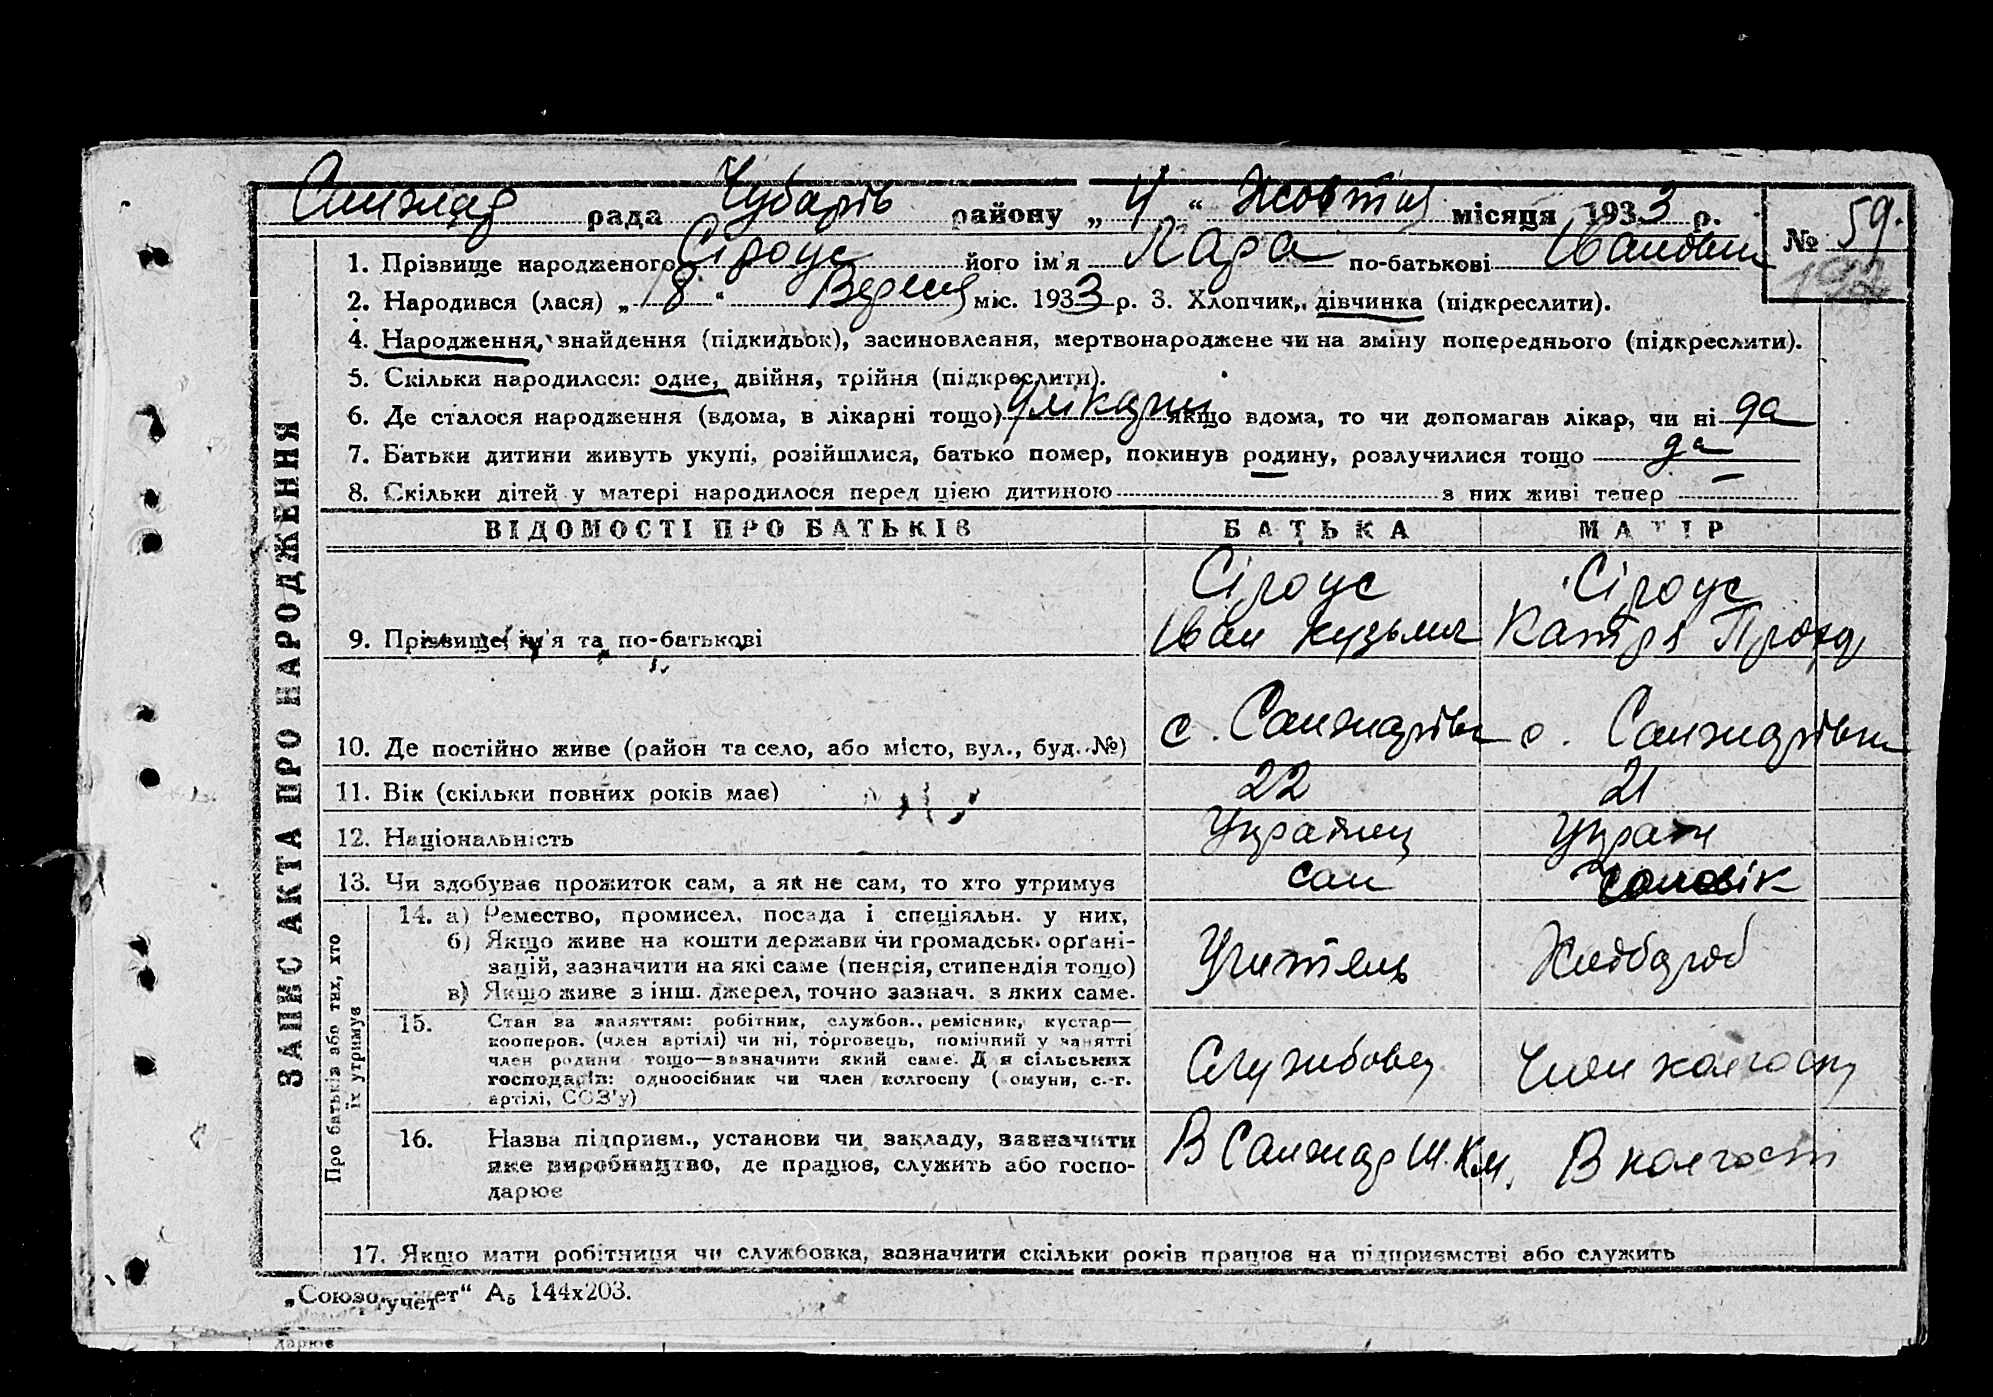 Санжар рада Чубарів району „4“ Жовтня місяця 1933 р.
№ 59.
192
1. Прізвище народженого Сіроус його ім'я Лара по-батькові Івановн
2. Народився (лася) „18“ Вересня міс. 1933 р. 3. Хлопчик, дівчинка (підкреслити).
4. Народження, знайдення (підкидьок), засиновлення, мертвонароджене чи на зміну попереднього (підкреслити).
5. Скільки народилося: одне, двійня, трійня (підкреслити).
6. Де сталося народження (вдома, в лікарні тощо) у лікарні якщо вдома, то чи допомагав лікар, чи ні да
7. Батьки дитини живуть укупі, розійшлися, батько помер, покинув родину, розлучилися тощо да
8. Скільки дітей у матері народилося перед цією дитиною — з них живі тепер
ЗАПИС АКТА ПРО НАРОДЖЕННЯ
ВІДОМОСТІ ПРО БАТЬКІВ БАТЬКА МАТІР
9. Прізвище, ім'я та по-батькові
Сіроус Іван Кузьмич
Сіроус Катря Прох
10. Де постійно живе (район та село, або місто, вул., буд. №) с. Санжарівка с. Санжарівка
11. Вік (скільки повних років має) 22 21
12. Національність Українец Украін
13. Чи здобував прожиток сам, а як не сам, то хто утримує сам Чоловік
Про батьків або тих, хто
їх утримує
14. а) Ремество, промисел, посада і спеціяльн. у них,
б) Якщо живе на кошти держави чи громадськ. органі-
зацій, зазначити на які саме (пенсія, стипендія тощо)
в) Якщо живе з інш. джерел, точно зазнач. з яких саме.
Учитель Хлібороб
15. Стан за заняттям: робітник, службов., ремісник, кустар—
кооперов. (член артілі) чи ні, торговець, помічний у занятті
член родини тощо—зазначити який саме. Для сільських
господарів: одноосібник чи член колгоспу (комуни, с.-г.
артілі, СОЗ'у)
Службовец Член колгоспу
16. Назва підприєм., установи чи закладу, зазначити
яке виробництво, де працює, служить або госпо-
дарює
В Санжар Ш.К.М. В колгоспі
17. Якщо мати робітниця чи службовка, зазначити скільки років працює на підприємстві або служить
„Союзоргучет“ А₅ 144x203.
дарює